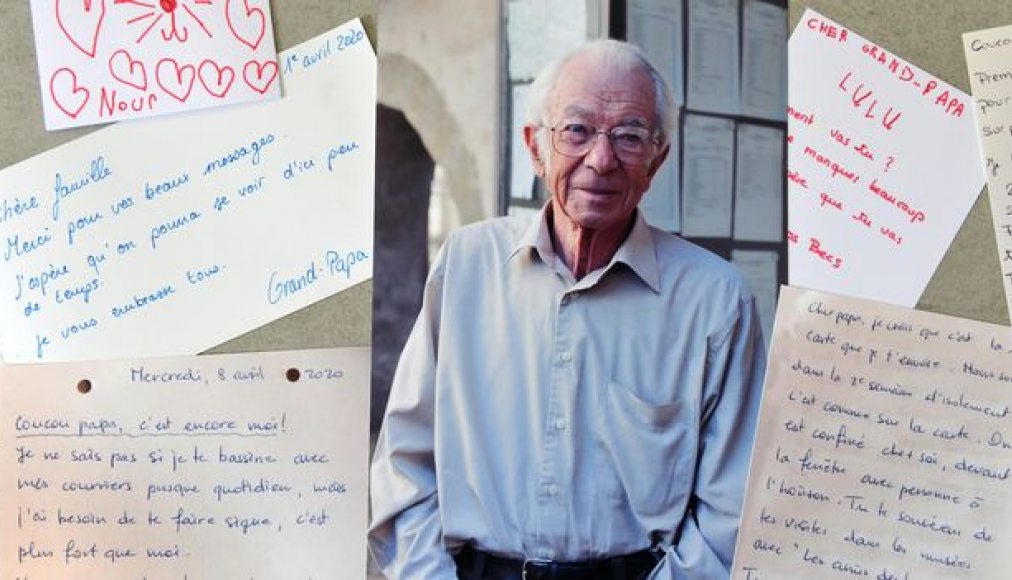 Nour
1er avril 2020
chère famille
Merci pour vos beaux messages.
J'espère qu'on pourra se voir d'ici peu
de temps.
je vous embrasse tous.
Grand-Papa
Mercredi, 8 avril 2020
Coucou papa, c'est encore moi!
Je ne sais pas si je te bassine avec
mes courriers presque quotidien, mais
j'ai besoin de te faire signe, c'est
plus fort que moi.
CHER GRAND-PAPA
LULU
ment vas tu ?
manques beaucoup
que tu vas
Becs
Coucou
Prem
pour
sur
Cher papa, je crois que c'est la
carte que je t'envoie. Nous so
dans la 2e semaine d'isolement
c'est comme sur la carte. On
est confiné chez soi, devant
la fenêtre avec personne à
l'horizon. Tu te souviens de
tes visites dans les musées
avec "Les amis de